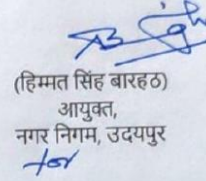 (हिम्मत सिंह बारहठ)
आयुक्त,
नगर निगम, उदयपुर
for